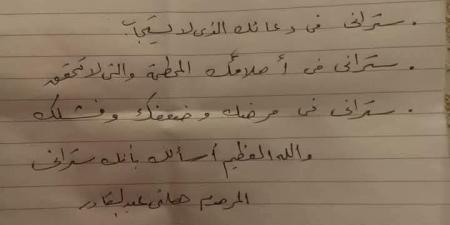 . ستراني في دعائك الذي لا يستجاب
. ستراني في أحلامك المحطمة والتي لا تتحقق
. ستراني في مرضك وضعفك وفشلك
والله العظيم أسألك بأنك ستراني
المرحوم هاني عبد القادر